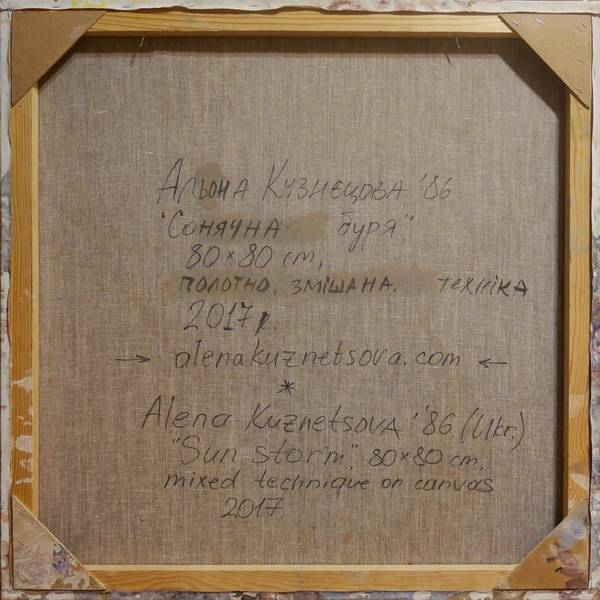 Альона Кузнєцова '86
"Сонячна буря"
80×80 cm,
полотно, змішана. техніка
2017 р.
→ alenakuznetsova.com ←
*
Alena Kuznetsova '86 (Ukr.)
"Sun storm". 80×80 cm,
mixed technique on canvas
2017